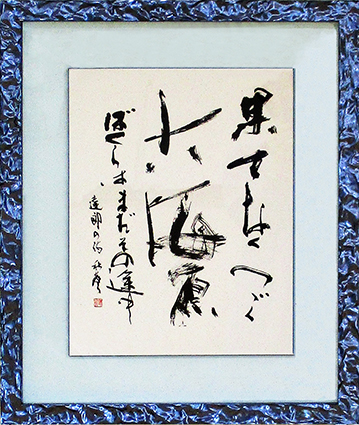 果てなくつづく
大海原
ぼくらはまだその途中
達郎の詩